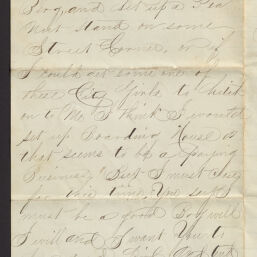 Boy, and set up a Pea
Nut stand on some
Street Corner, or if
I could get some one of
these City Girls to hitch
on to Me I think I would
set up Boarding House as
that seems to be a paying
Business, But I must
for this time, You say I
must be a good Boy, well
I will and I want You to